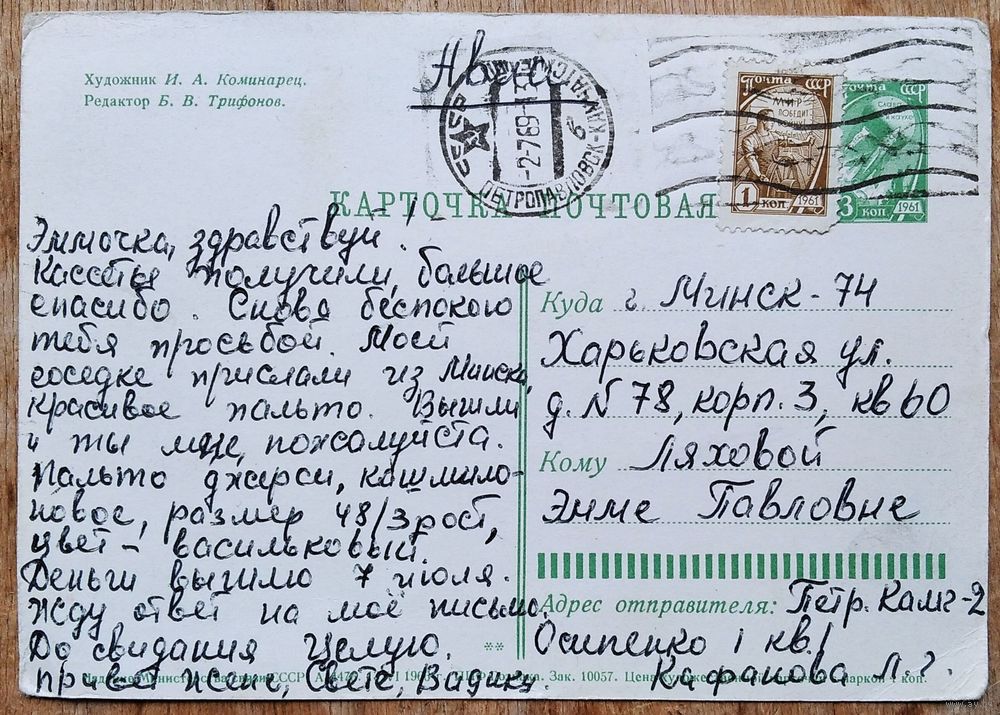 Художник И. А. Коминарец.
Редактор Б. В. Трифонов.
Авиа
СССР
ПЕТРОПАВЛОВСК-КАМЧАТСКИЙ
-2-7 69-13
б
Почта СССР
МИР ПОБЕДИТ ВОЙНУ
1 коп 1961
Почта СССР
Слава науке
3 коп 1961
КАРТОЧКА ПОЧТОВАЯ
Эммочка, здравствуй!
Кассеты получили, большое
спасибо. Снова беспокою
тебя просьбой. Моей
соседке прислали из Минска
красивое пальто. Вышли
и ты мне, пожалуйста.
Пальто джерси, кашмило-
новое, размер 48/3 рост,
цвет – васильковый.
Деньги вышлю 7 июля.
Жду ответ на моё письмо.
До свидания Целую.
Привет Жене, Свете, Вадику
Куда г. Минск-74
Харьковская ул.
д. N 78, корп. 3, кв 60
Кому Ляховой
Эмме Павловне
Адрес отправителя: Петр. Камч-2
Осипенко 1 кв 1
**
Министерства связи СССР
Зак. 10057.
коп.
www.ay.by